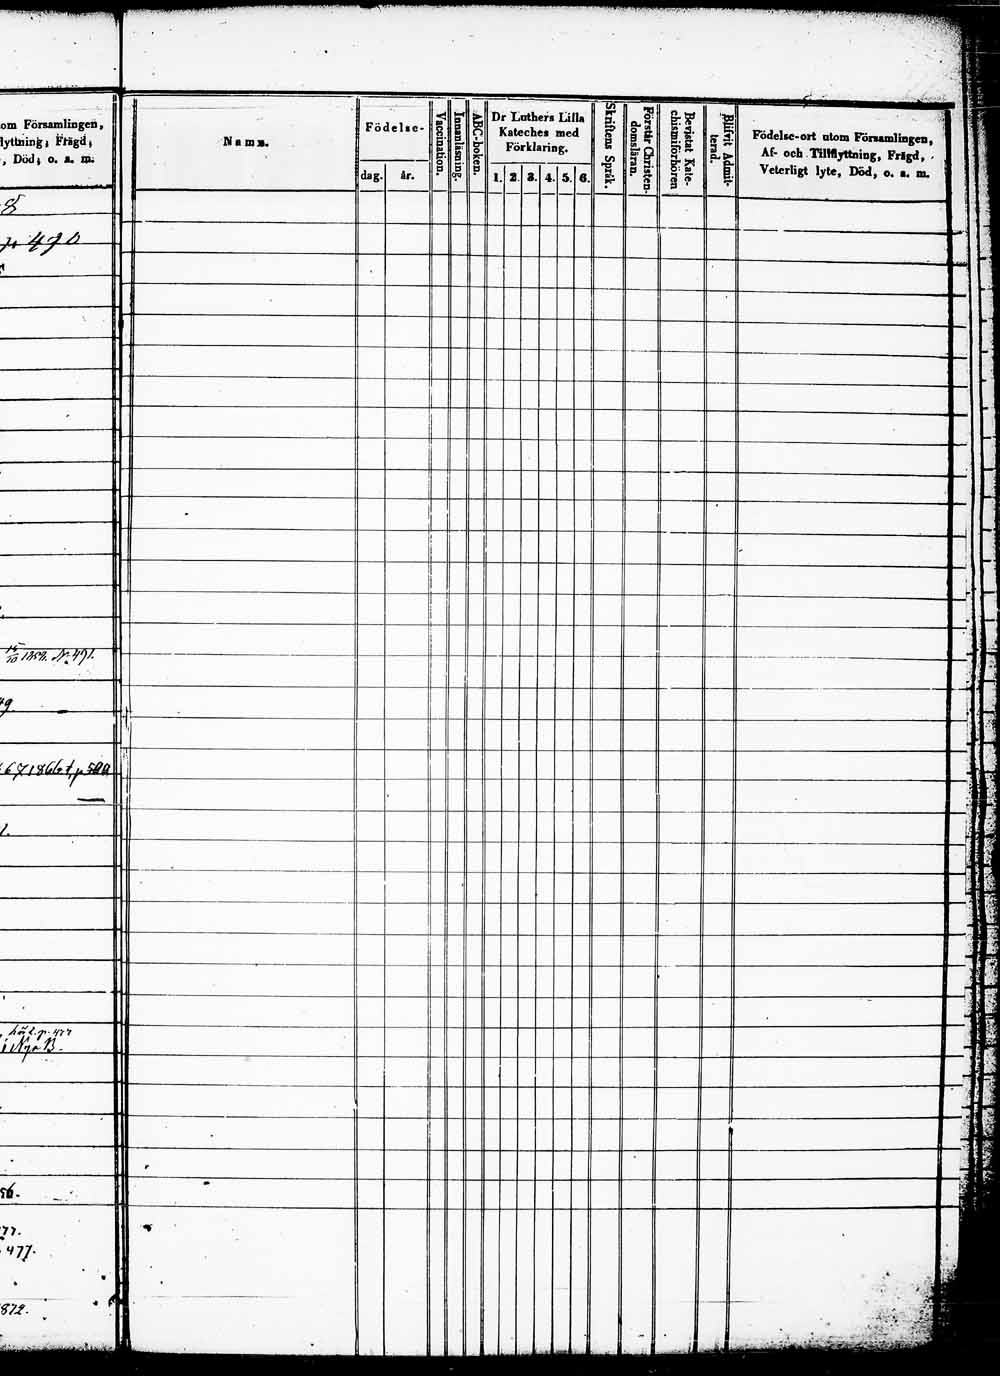 om Församlingen,
lyttning, Frägd,
, Död, o. s. m.
8
490
15/10 1858. N. 491.
49.
67 1866 t, p 500
1.
p. 477
i Nya B.
56.
77.
477.
1872.
Namn.
Födelse-
dag.
år.
Vaccination.
Innanläsning.
ABC-boken.
Dr Luthers Lilla
Kateches med
Förklaring.
1. 2. 3. 4. 5. 6.
Skriftens Språk.
Förstår Christen-
domsläran.
Bevistat Kate-
chismiförhören
Blifvit Admit-
terad.
Födelse-ort utom Församlingen,
Af- och Tillflyttning, Frägd,
Veterligt lyte, Död, o. s. m.